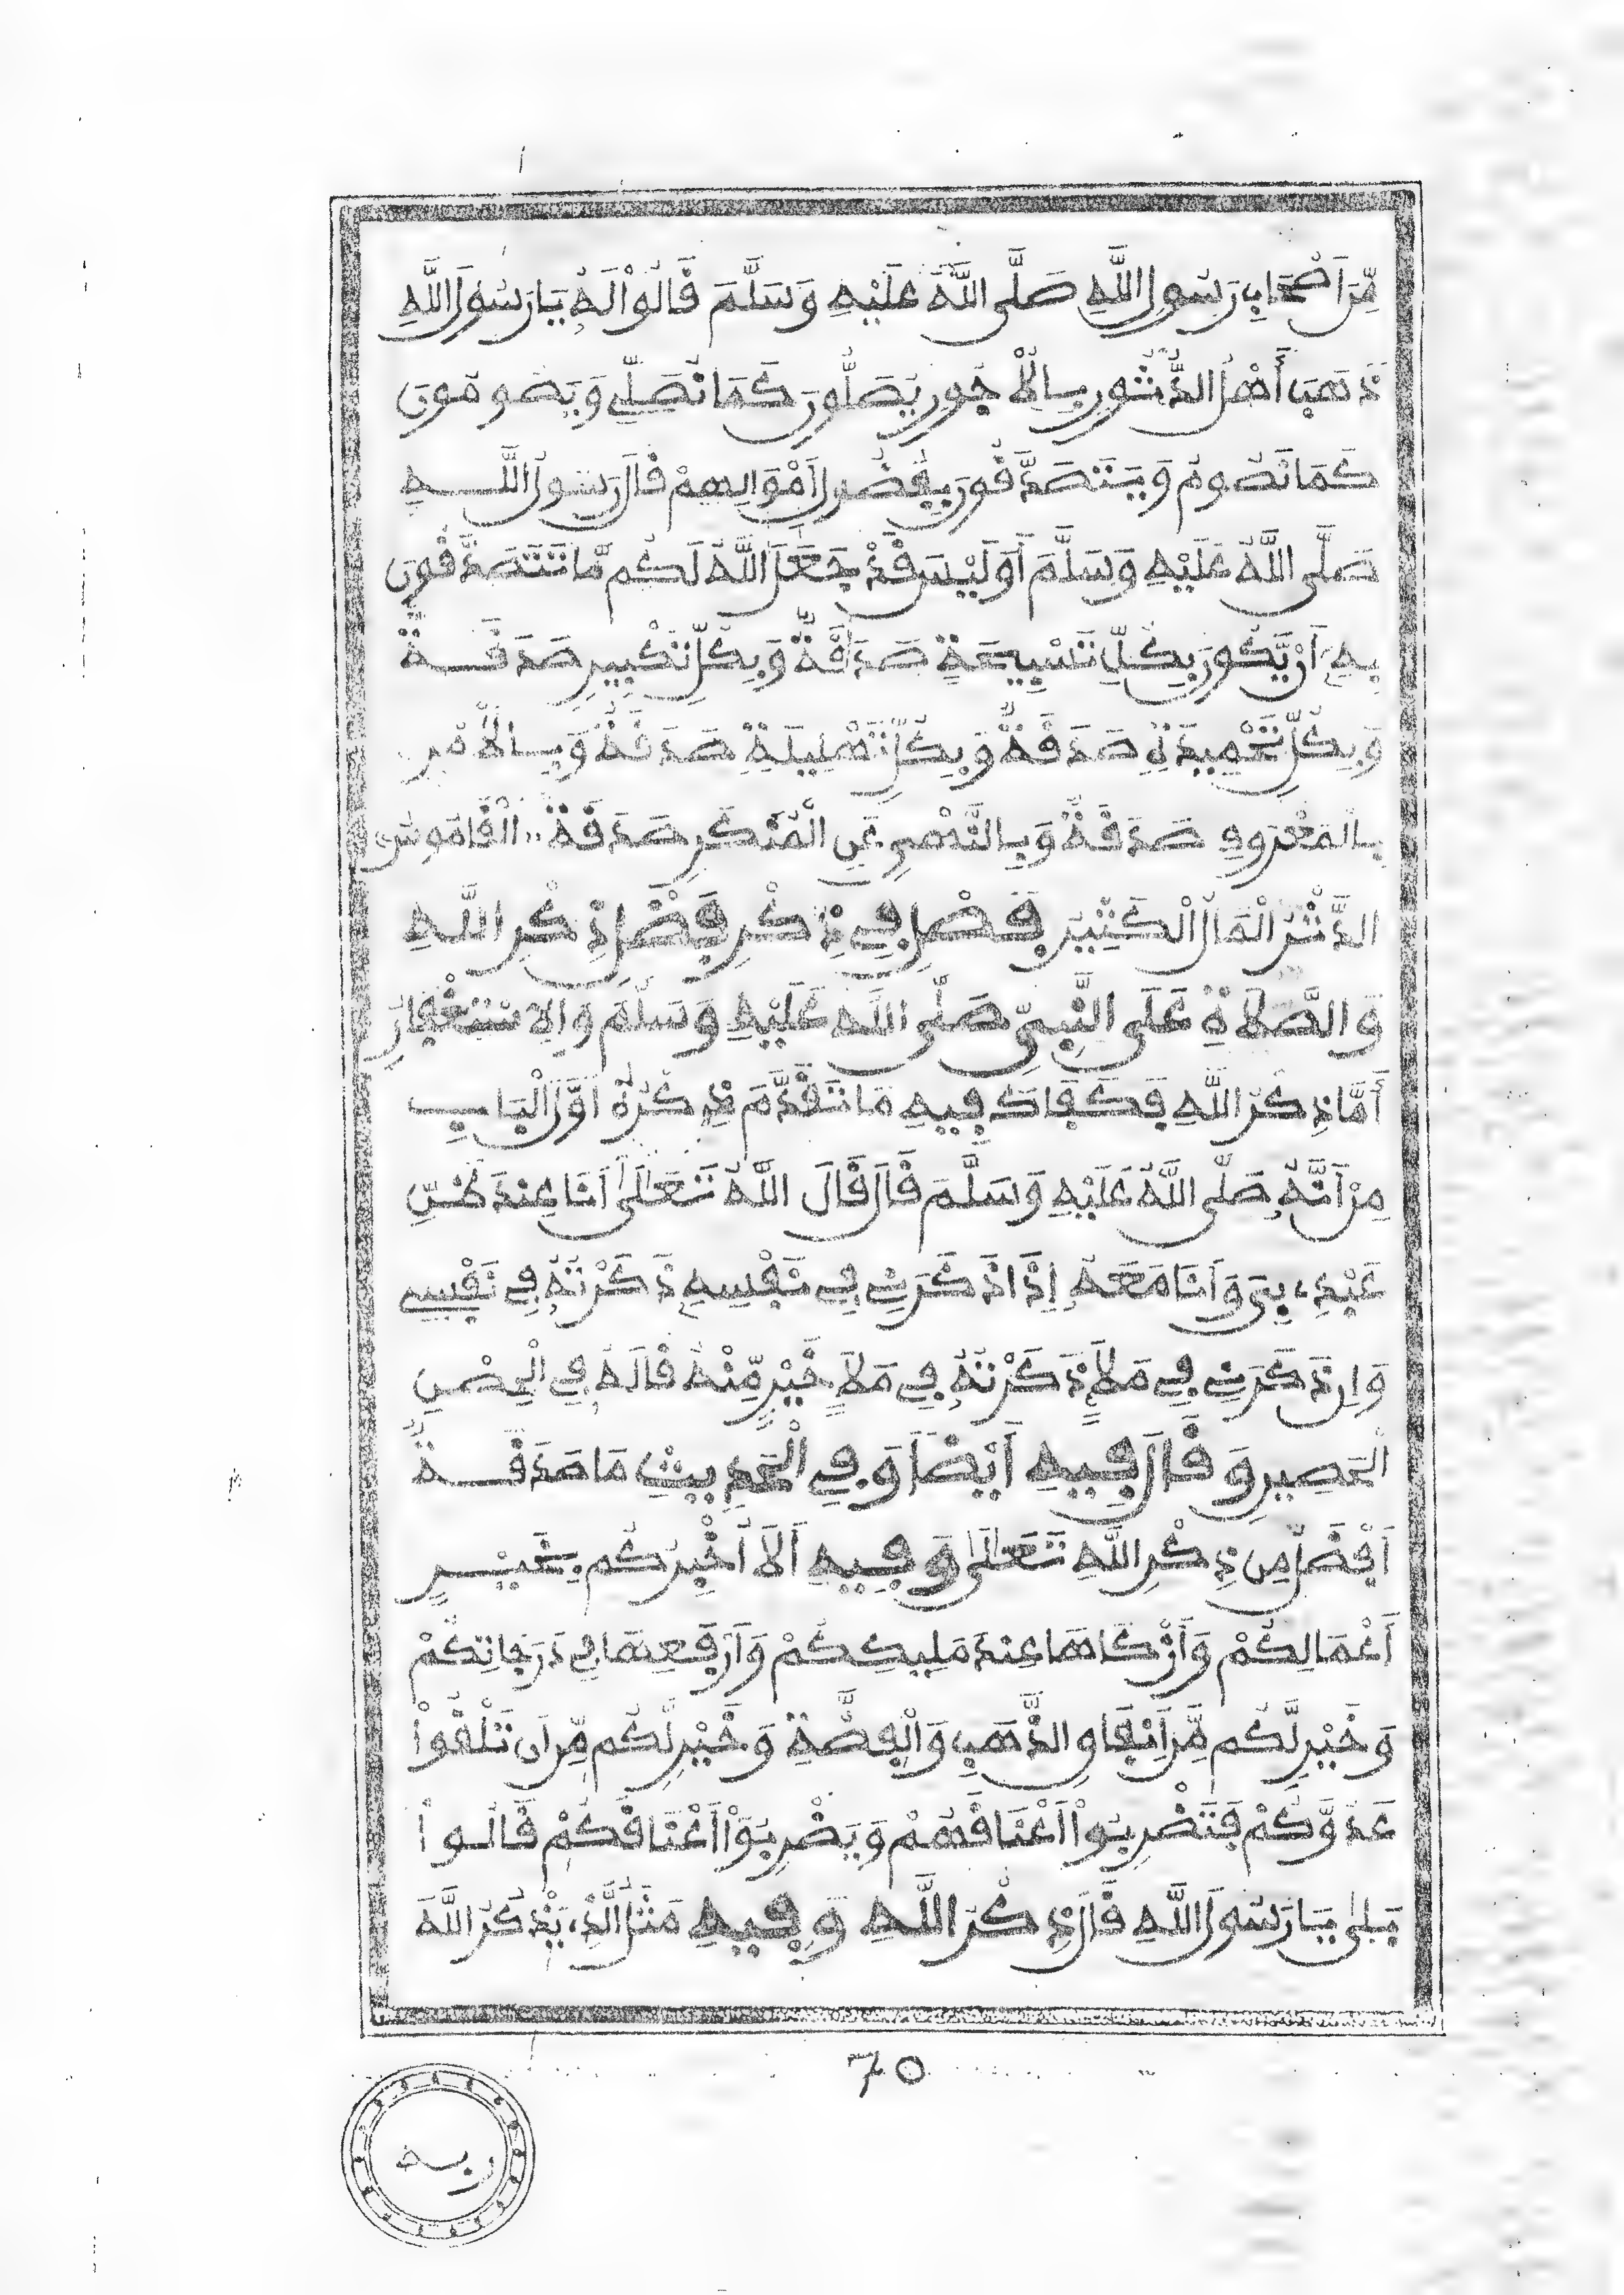 مِّنَ اَصْحَابِ رَسُولِ اللَّهِ صَلَّى اللَّهُ عَلَيْهِ وَسَلَّمَ قَالُواْ لَهُ يَا رَسُولَ اللَّهِ
ذَهَبَ أَهْلُ الدُّثُورِ بِالْأُجُورِ يُصَلُّونَ كَمَا نُصَلِّي وَيَصُومُونَ
كَمَا نَصُومُ وَيَتَصَدَّقُونَ بِفُضُولِ أَمْوَالِهِمْ قَالَ رَسُولُ اللَّهِ
صَلَّى اللَّهُ عَلَيْهِ وَسَلَّمَ أَوَلَيْسَ قَدْ جَعَلَ اللَّهُ لَكُم مَّا تَتَصَدَّقُونَ
بِهِ أَنْ يَّكُونَ بِكُلِّ تَسْبِيحَةٍ صَدَقَةٌ وَبِكُلِّ تَكْبِيرٍ صَدَقَةٌ
وَبِكُلِّ تَحْمِيدَةٍ صَدَقَةٌ وَبِكُلِّ تَهْلِيلَةٍ صَدَقَةٌ وَبِالْأَمْرِ
بِالْمَعْرُوفِ صَدَقَةٌ وَبِالنَّهْيِ عَنِ الْمُنْكَرِ صَدَقَةٌ .. الْقَامُوسُ
الدَّثْرُ الْمَالُ الْكَثِيرُ فَصْلٌ فِي ذِكْرِ فَضْلِ ذِكْرِ اللَّهِ
وَالصَّلَاةِ عَلَى النَّبِيِّ صَلَّى اللَّهُ عَلَيْهِ وَسَلَّمَ وَالِاسْتِغْفَارِ
أَمَّا ذِكْرُ اللَّهِ فَكَفَاكَ فِيهِ مَا تَقَدَّمَ ذِكْرُهُ أَوَّلَ الْبَابِ
مِنْ أَنَّهُ صَلَّى اللَّهُ عَلَيْهِ وَسَلَّمَ قَالَ قَالَ اللَّهُ تَعَلَى أَنَا عِندَ ظَنِّ
عَبْدِي بِي وَأَنَا مَعَهُ إِذَا ذَكَرَنِي فِي نَفْسِهِ ذَكَرْتُهُ فِي نَفْسِي
وَإِن ذَكَرَنِي فِي مَلَإٍ ذَكَرْتُهُ فِي مَلَإٍ خَيْرٍ مِّنْهُ قَالَهُ فِي الْحِصْنِ
الْحَصِينِ وَقَالَ فِيهِ أَيْضًا وَفِي الْحَدِيثِ مَا صَدَقَةٌ
أَفْضَلُ مِن ذِكْرِ اللَّهِ تَعَلَى وَفِيهِ أَلَا أُخْبِرُكُم بِخَيْرِ
أَعْمَالِكُمْ وَأَزْكَاهَا عِندَ مَلِيكِكُمْ وَأَرْفَعِهَا فِي دَرَجَاتِكُمْ
وَخَيْرٍ لَّكُم مِّنْ إِنْفَاقِ الذَّهَبِ وَالْفِضَّةِ وَخَيْرٍ لَّكُم مِّنَ أَن تَلْقَوْاْ
عَدُوَّكُمْ فَتَضْرِبُواْ أَعْنَاقَهُمْ وَيَضْرِبُواْ أَعْنَاقَكُمْ قَالُواْ
بَلَى يَا رَسُولَ اللَّهِ قَالَ ذِكْرُ اللَّهِ وَفِيهِ مَثَلُ الَّذِي يَذْكُرُ اللَّهَ
70